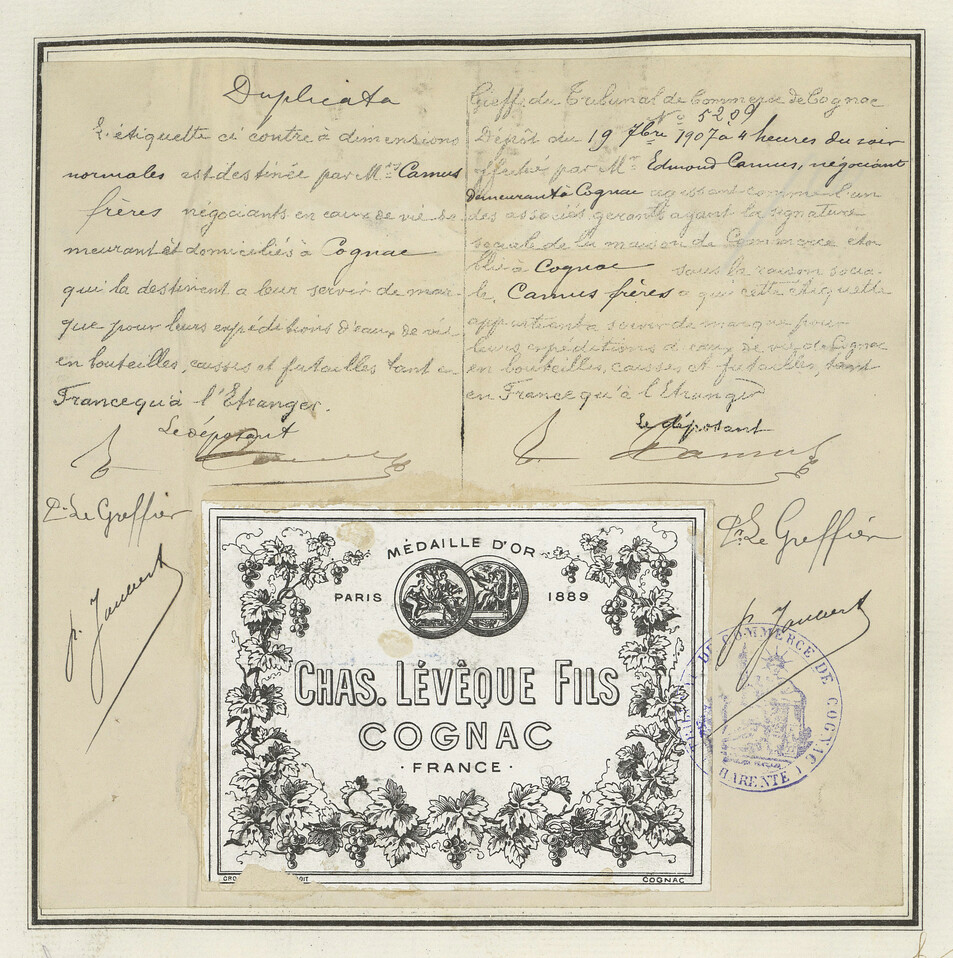 Duplicata
L'étiquette ci contre à dimensions
normales est destinée par M.rs Camus
frères négociants en eaux de vie de
meurant et domiciliés à Cognac
qui la destinent a leur servir de mar-
que pour leurs expéditions d'eaux de vie
en bouteilles, caisses et futailles tant en
France qu'à l'Etranger.
Le déposant
P. Le Greffier
Greffe du Tribunal de Commerce de Cognac
No 5209
Dépôt du 19 7bre 1907 à 4 heures du soir
effectué par Mr Edmond Camus, négociant
demeurant à Cognac agissant comme l'un
des associés gérants ayant la signature
sociale de la maison de Commerce éta-
blie à Cognac sous la raison socia-
le, Camus frères a qui cette étiquette
appartient a servir de marque pour
leurs expéditions d'eaux de vie de Cognac
en bouteilles, caisses et futailles, tant
en France qu'à l'Etranger
Le déposant
Camus
P. Le Greffier
MÉDAILLE D'OR
PARIS 1889
CHAS. LÉVÊQUE FILS
COGNAC
· FRANCE ·
COGNAC
TRIBUNAL DE COMMERCE DE COGNAC
(CHARENTE)